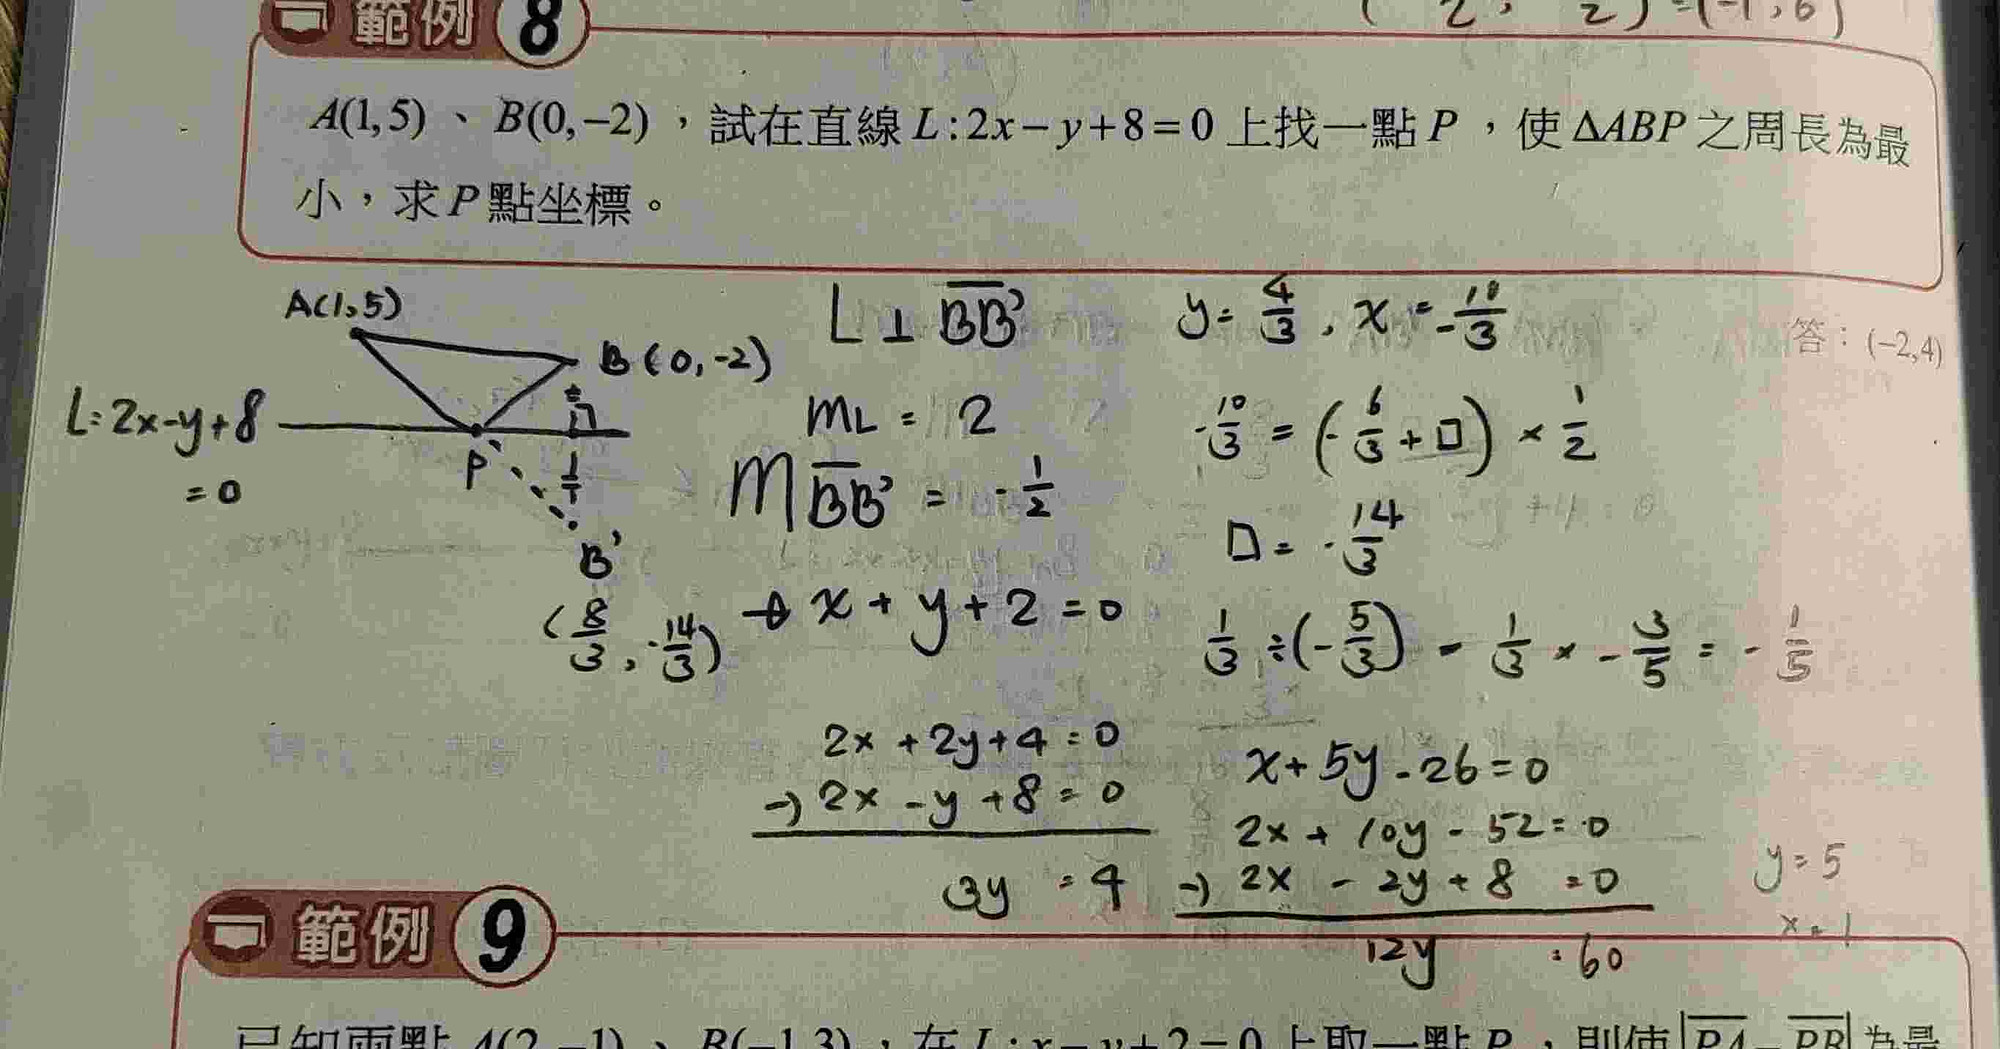 範例 8
( 2 , 2 ) = (-1, 6)
A(1,5)、B(0,−2),試在直線 L:2x−y+8=0 上找一點 P,使 ΔABP 之周長為最
小,求 P 點坐標。
答:(−2,4)
A(1,5)
B(0,-2)
L:2x-y+8
=0
P
B'
(8/3, -14/3)
L ⊥ BB'
mL = 2
mBB' = -1/2
x + y + 2 = 0
2x + 2y + 4 = 0
-) 2x - y + 8 = 0
3y = 4
y = 4/3, x = -10/3
-10/3 = (-6/3 + □) × 1/2
□ = -14/3
1/3 ÷ (-5/3) = 1/3 × -3/5 = -1/5
x + 5y - 26 = 0
2x + 10y - 52 = 0
-) 2x - 2y + 8 = 0
12y = 60
y = 5
x = 1
範例 9
已知兩點 A(2,−1)、B(−1,3),在 L:x−y+2=0 上取一點 P,則使|PA−PB|為最